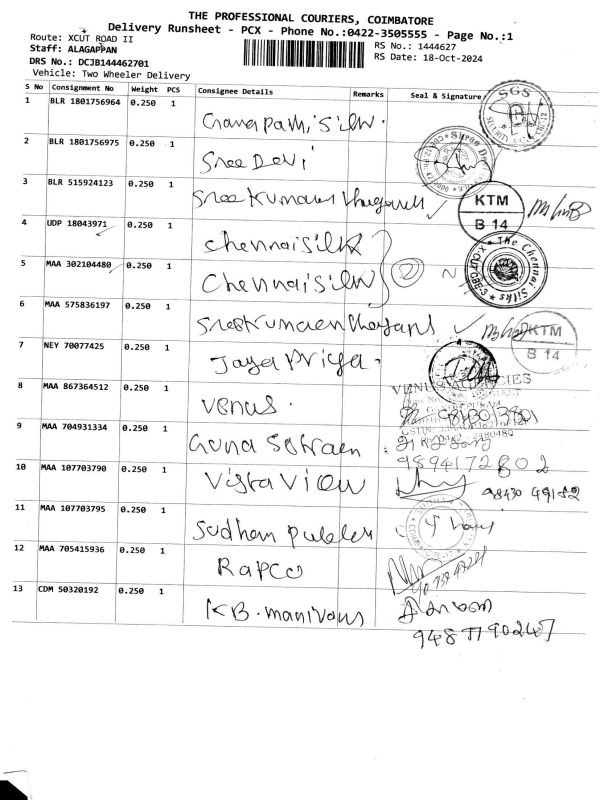 THE PROFESSIONAL COURIERS, COIMBATORE
Delivery Runsheet - PCX - Phone No.:0422-3505555 - Page No.:1
Route: XCUT ROAD II
RS No.: 1444627
Staff: ALAGAPPAN
RS Date: 18-Oct-2024
DRS No.: DCJB144462701
Vehicle: Two Wheeler Delivery
S No Consignment No Weight PCS Consignee Details Remarks Seal & Signature
SGS
1 BLR 1801756964 0.250 1 Ganapathi silk.
2 BLR 1801756975 0.250 1 Sree Devi
3 BLR 515924123 0.250 1 Sreekumaran
KTM
B 14
4 UDP 18043971 0.250 1 Chennai silk
The Chennai Silks
5 MAA 302104480 0.250 1 Chennai silk 2
6 MAA 575836197 0.250 1 Sreekumaran
KTM
B 14
7 NEY 70077425 0.250 1 Jaya Priya.
VENUS AGENCIES
8 MAA 867364512 0.250 1 Venus.
9 MAA 704931334 0.250 1 Guna
9894172802
10 MAA 107703790 0.250 1 Vista View
98430 49182
11 MAA 107703795 0.250 1 Sudhan
12 MAA 705415936 0.250 1 RAPCO
13 CDM 50320192 0.250 1 KB.
9487790247